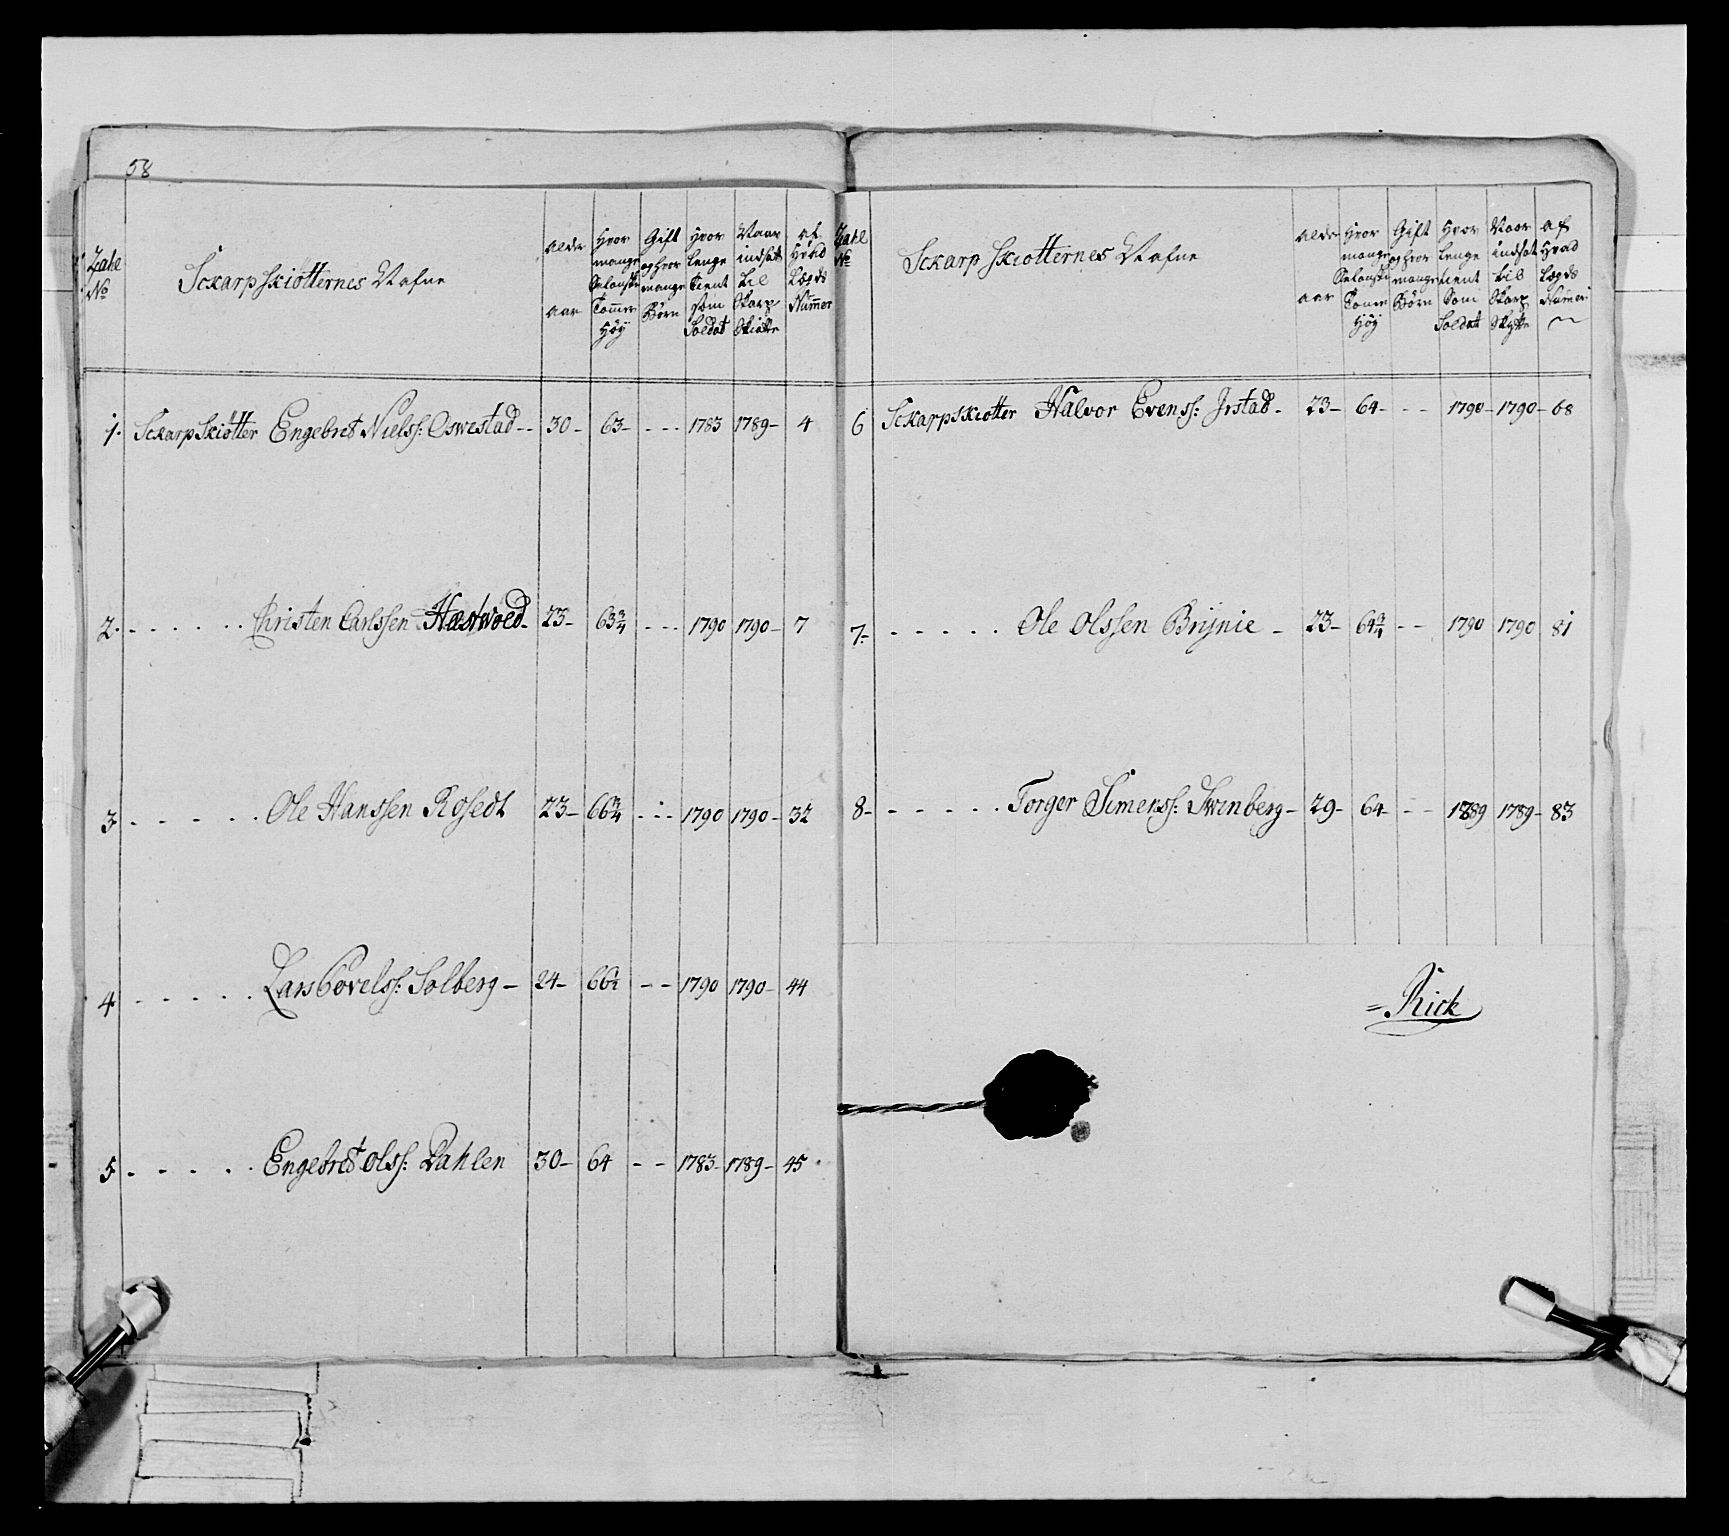 58
Zahl No | Sckarp Skiötternes Nafne | Alder aar | Hvor mange Selanske Tommer Höÿ | Gift og hvor mange Börn | Hvor lenge tient som Soldat | Naar indsatt til Skarp Skiötte | af Hvad Lægds Nummer
1. Sckarp Skiötter Engebret Nielss: Oswestad - - 30 - 63 - - - - 1783 1789 - 4
2. - - - - - - Christen Carlssen Hastwoed - 23 - 63 3/4 - - - 1790 1790 - 7
3 - - - - - - Ole Hanssen Rosedt 23 - 66 3/4 - - - 1790 1790 - 32
4 - - - - - - Lars Povelss: Solberg - 24 - 66 1/2 - - 1790 1790 - 44
5 - - - - - - Engebret Olss: Dahlen 30 - 64 - - 1783 - 1789 - 45
Zahl No | Sckarp Skiötternes Nafne | Alder aar | Hvor mange Selanske Tomer Höÿ | Gift og hvor mange Börn | Hvor lenge tient Som Soldatt | Naar indsat til Skarp Skytte | af Hvad Lægds Numer
6 Sckarpskiötter Halvor Evenss: Irstad - 23 - 64 - - - 1790 - 1790 - 68
7 - - - - - - Ole Olssen Brÿnie - 23 - 64 3/4 - - 1790 1790 81
8 - - - - - - Torger Simenss: Swenberg - 29 - 64 - - - 1789 1789 - 83
= Rick